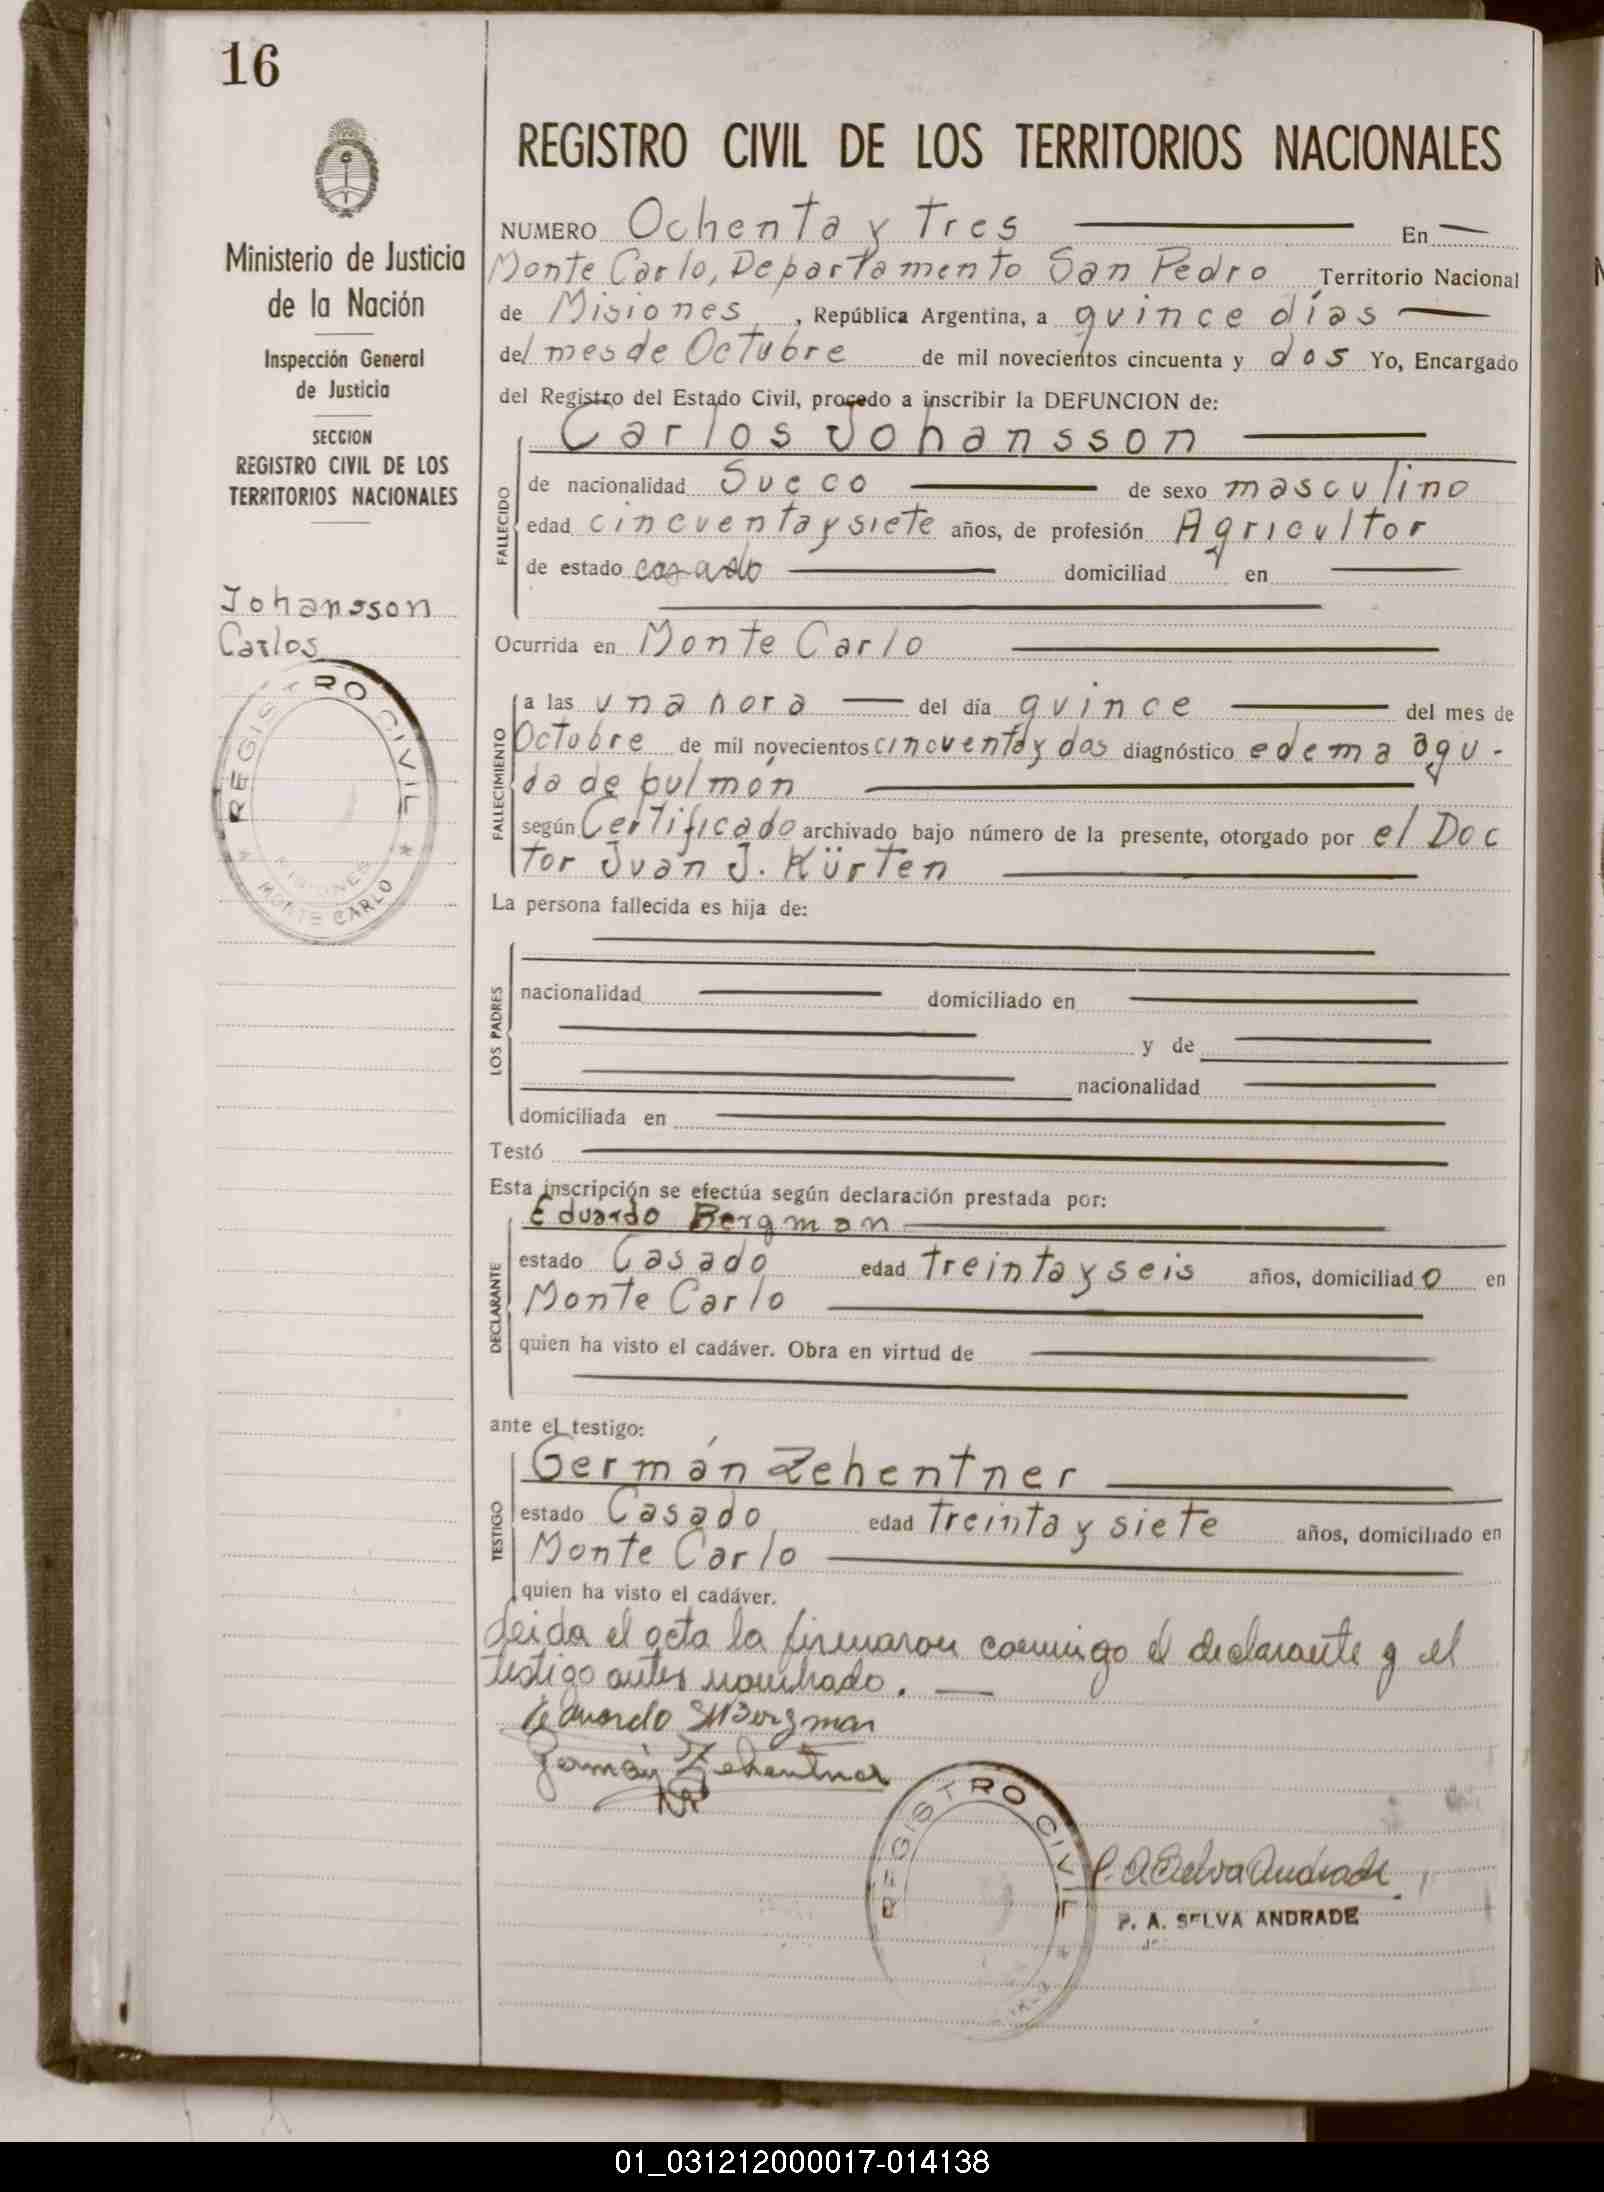 16
Ministerio de Justicia
de la Nación
Inspección General
de Justicia
SECCION
REGISTRO CIVIL DE LOS
TERRITORIOS NACIONALES
Johansson
Carlos
REGISTRO CIVIL
MISIONES
* MONTE CARLO *
REGISTRO CIVIL DE LOS TERRITORIOS NACIONALES
NUMERO Ochenta y Tres En
Monte Carlo, Departamento San Pedro Territorio Nacional
de Misiones, República Argentina, a quince días
del mes de Octubre de mil novecientos cincuenta y dos Yo, Encargado
del Registro del Estado Civil, procedo a inscribir la DEFUNCION de:
Carlos Johansson
FALLECIDO
de nacionalidad Sueco de sexo masculino
edad cincuenta y siete años, de profesión Agricultor
de estado casado domiciliad en
Ocurrida en Monte Carlo
FALLECIMIENTO
a las una hora del día quince del mes de
Octubre de mil novecientos cincuenta y dos diagnóstico edema agu-
do de pulmón
según Certificado archivado bajo número de la presente, otorgado por el Doc
tor Juan J. Kürten
La persona fallecida es hija de:
LOS PADRES
nacionalidad domiciliado en
y de
nacionalidad
domiciliada en
Testó
Esta inscripción se efectúa según declaración prestada por:
Eduardo Bergman
DECLARANTE
estado Casado edad treinta y seis años, domiciliado en
Monte Carlo
quien ha visto el cadáver. Obra en virtud de
ante el testigo:
Germán Zehentner
TESTIGO
estado Casado edad treinta y siete años, domiciliado en
Monte Carlo
quien ha visto el cadáver.
Leida el acta la firmaron conmigo el declarante y el
testigo antes nombrado.
Eduardo Bergman
Germán Zehentner
REGISTRO CIVIL
P. A. Selva Andrade
P. A. SELVA ANDRADE
01_031212000017-014138